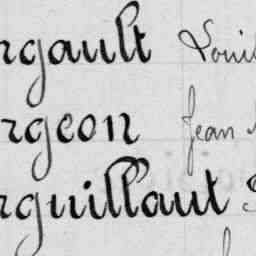 rgault Louis
rgeon Jean
rguillaut